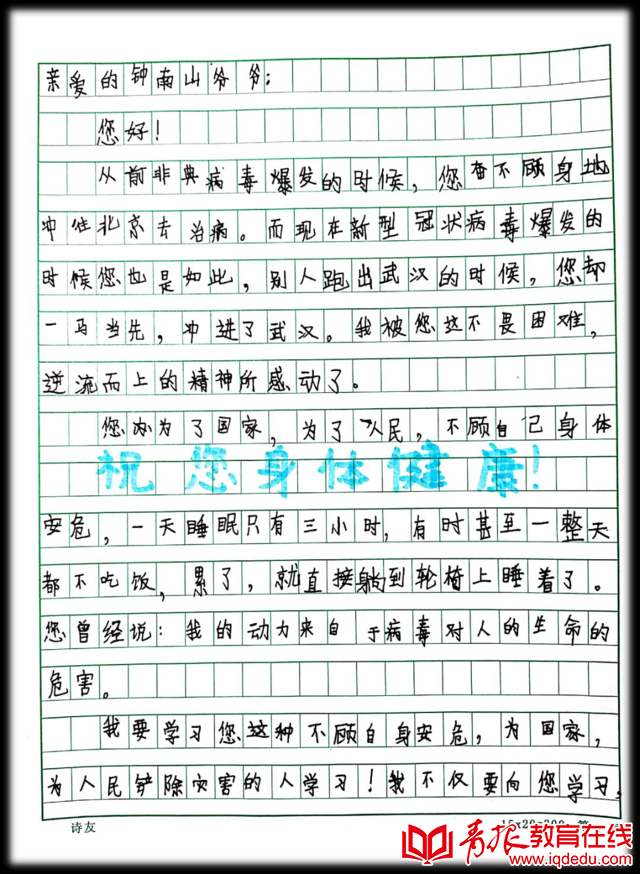 亲爱的钟南山爷爷：
您好！
从前非典病毒爆发的时候，您奋不顾身地
冲往北京去治病。而现在新型冠状病毒爆发的
时候您也是如此，别人跑出武汉的时候，您却
一马当先，冲进了武汉。我被您这不畏困难，
逆流而上的精神所感动了。
您为了国家，为了人民，不顾自己身体
祝您身体健康！
安危，一天睡眠只有三小时，有时甚至一整天
都不吃饭，累了，就直接躺到轮椅上睡着了。
您曾经说：我的动力来自于病毒对人的生命的
危害。
我要学习您这种不顾自身安危，为国家，
为人民铲除灾害的人学习！我不仅要向您学习，
诗友
15×20=300
青报教育在线
www.iqdedu.com